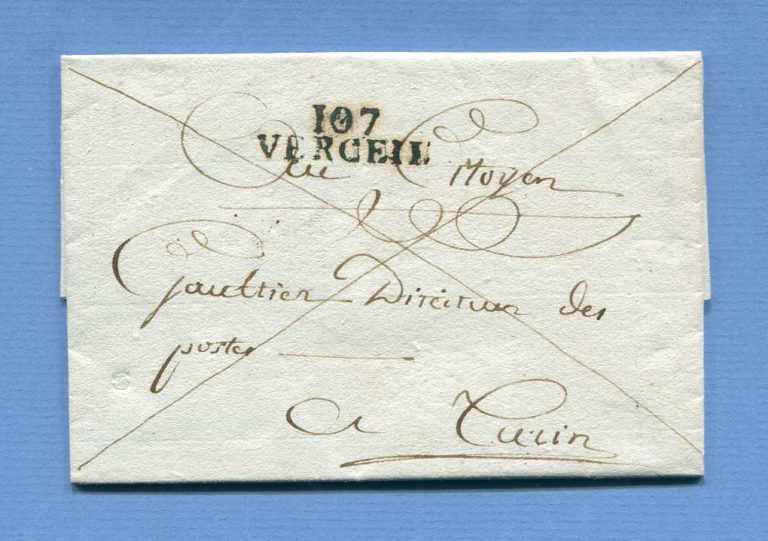 107
VERCEIL
Au Citoyen
Gaultier Directeur des
postes
a Turin